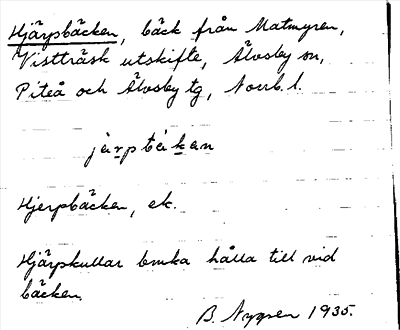 Hjärpbäcken, bäck från Matmyren,
Vistträsk utskifte, Älvsby sn,
Piteå och Älvsby tg, Norrb. l.
järpbäkan
Hjerpbäcken, ek.
Hjärpkullar bruka hålla till vid
bäcken.
B. 1935.